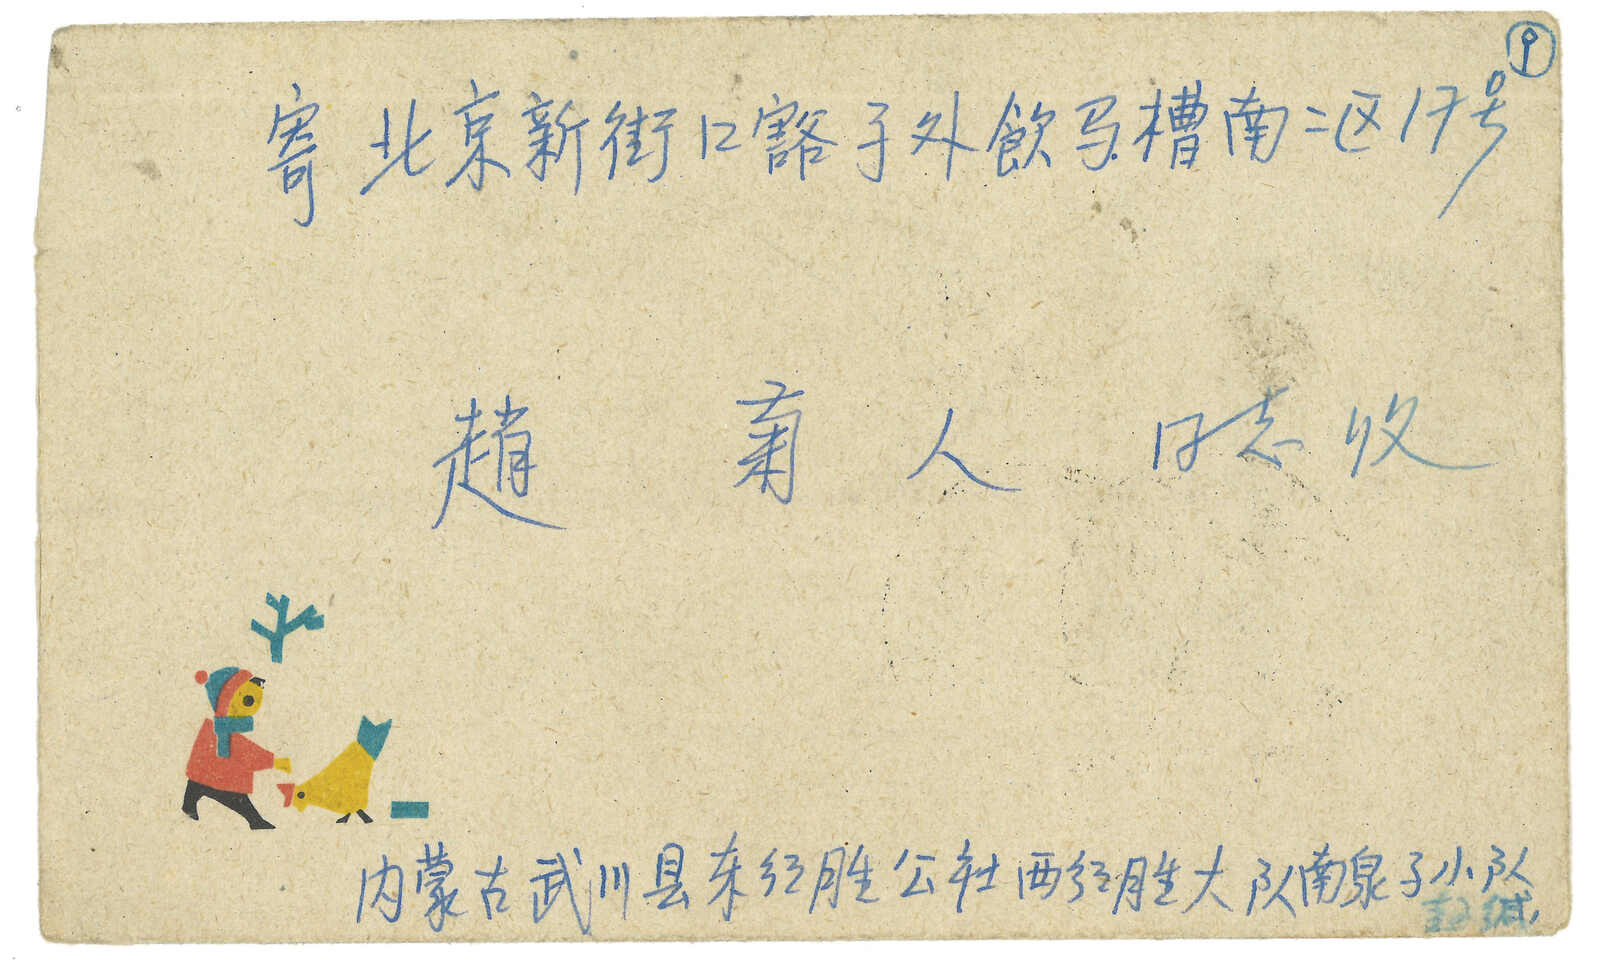 寄北京新街口豁子外飲马槽南二区17号
趙菊人同志收
内蒙古武川县东红胜公社西红胜大队南泉子小队
赵缄